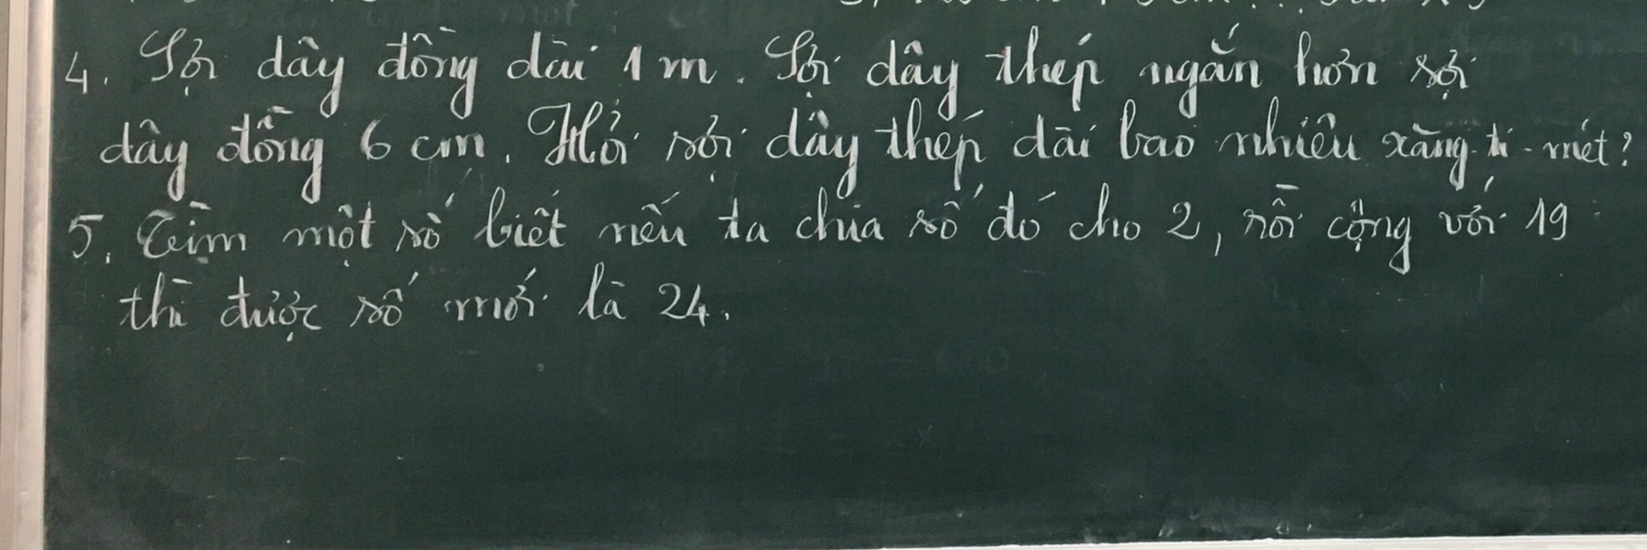 4. Sợi dây đồng dài 1 m. Sợi dây thép ngắn hơn sợi
dây đồng 6 cm. Hỏi sợi dây thép dài bao nhiêu xăng-ti-mét?
5. Tìm một số biết nếu ta chia số đó cho 2, rồi cộng với 19
thì được số mới là 24.